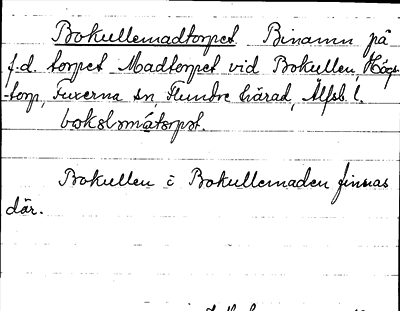 Bokullemadtorpet Binamn på
f.d. torpet Madtorpet vid Bokullen, Högs-
torp, Fuxerna sn, Flundre härad, Älfsb. l.
Bokullen i Bokullemaden finnas
där.